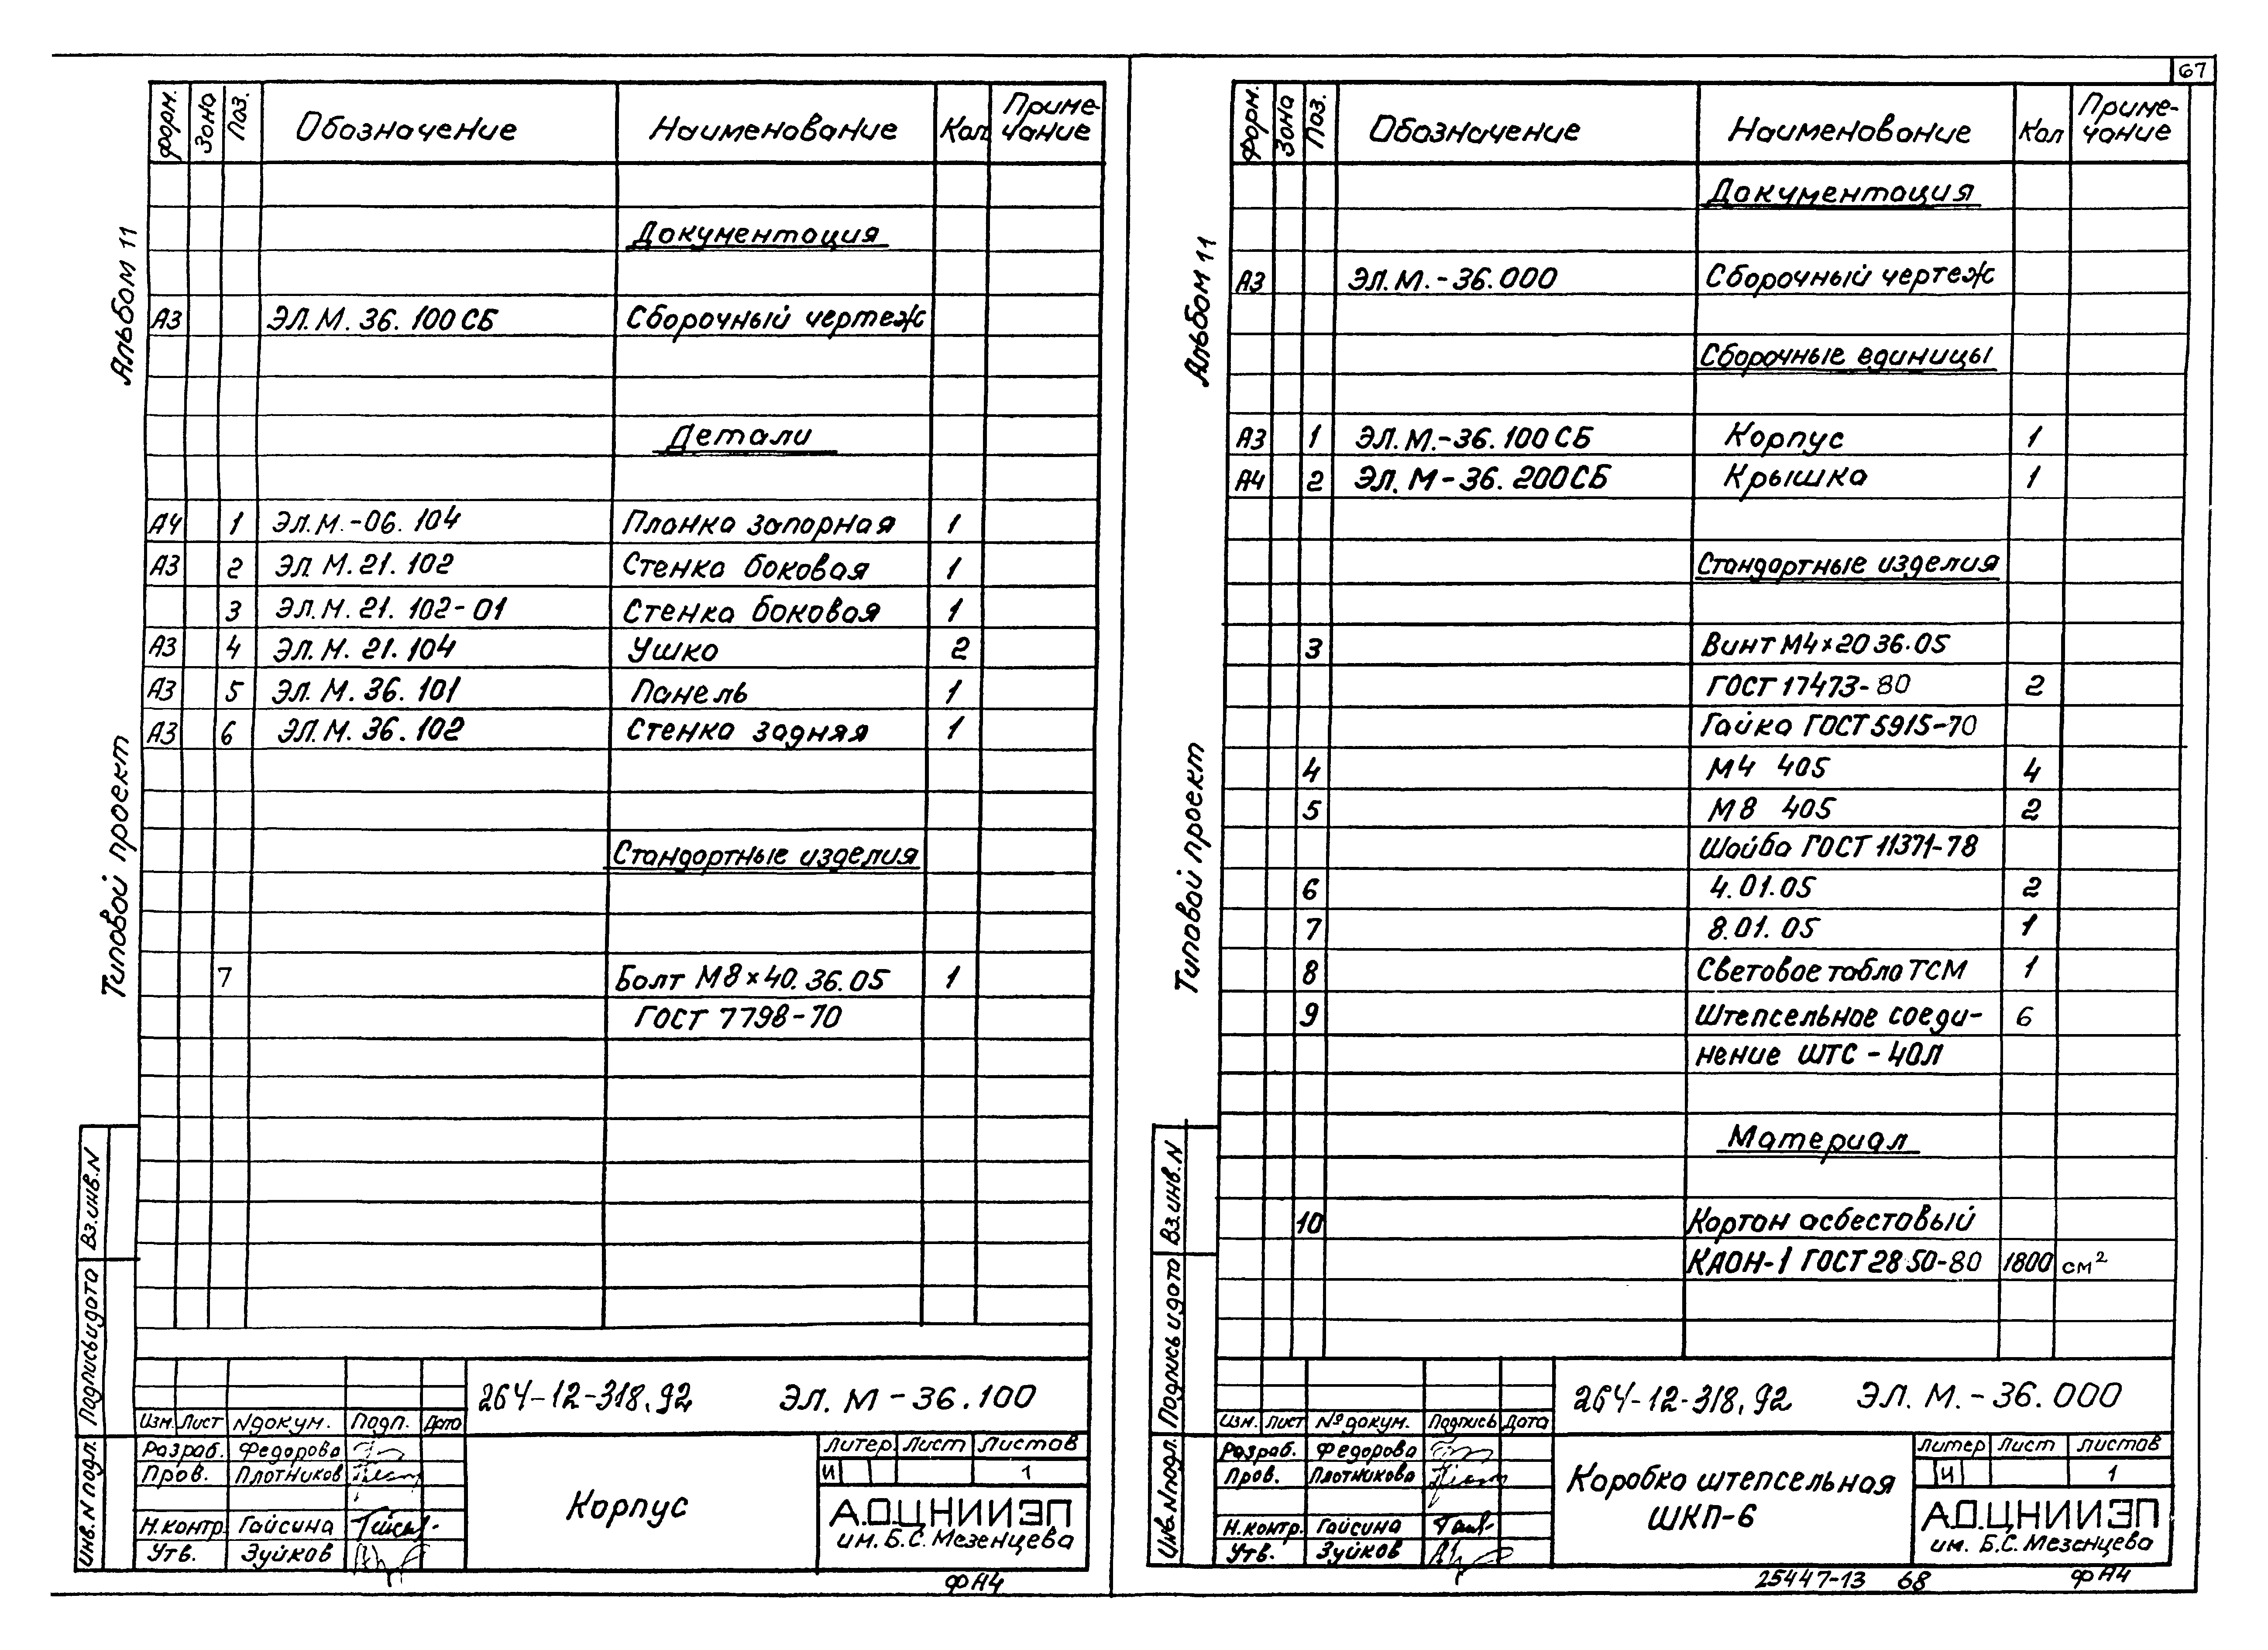 67
Альбом 11
Типовой проект
Форм. Зона Поз. Обозначение Наименование Кол. Приме-
чание
Документация
А3 ЭЛ.М. 36. 100 СБ Сборочный чертеж
Детали
А4 1 ЭЛ.М.-06. 104 Планка запорная 1
А3 2 ЭЛ М. 21. 102 Стенка боковая 1
3 ЭЛ.М. 21. 102-01 Стенка боковая 1
А3 4 ЭЛ. М. 21. 104 Ушко 2
А3 5 ЭЛ. М. 36. 101 Панель 1
А3 6 ЭЛ. М. 36. 102 Стенка задняя 1
Стандартные изделия
7 Болт М8×40.36.05 1
ГОСТ 7798-70
Вз.инв.N
Подпись и дата
Инв. N подл.
264-12-318.92 ЭЛ. М - 36.100
Изм. Лист N докум. Подп. Дата
Разраб. Федорова
Пров. Плотников
Н.контр. Гайсина
Утв. Зуйков
Корпус
Литер Лист Листов
И 1
А.О.ЦНИИЭП
им. Б.С. Мезенцева
ФА4
Альбом 11
Типовой проект
Форм. Зона Поз. Обозначение Наименование Кол Приме-
чание
Документация
А3 ЭЛ. М. - 36.000 Сборочный чертеж
Сборочные единицы
А3 1 ЭЛ. М.-36. 100 СБ Корпус 1
А4 2 ЭЛ. М-36. 200 СБ Крышка 1
Стандартные изделия
3 Винт М4×20 36.05
ГОСТ 17473-80 2
Гайка ГОСТ 5915-70
4 М4 405 4
5 М8 405 2
Шайба ГОСТ 11371-78
6 4.01.05 2
7 8.01.05 1
8 Световое табло ТСМ 1
9 Штепсельное соеди- 6
нение ШТС - 40Л
Материал
10 Картон асбестовый
КАОН-1 ГОСТ 2850-80 1800 см²
Вз.инв.N
Подпись и дата
Инв. N подл.
264-12-318.92 ЭЛ. М. - 36.000
Изм. Лист № докум. Подпись Дата
Разраб. Федорова
Пров. Плотникова
Н.контр. Гайсина
Утв. Зуйков
Коробка штепсельная
ШКП-6
Литер Лист Листов
И 1
А.О.ЦНИИЭП
им. Б.С. Мезенцева
25447-13 68 ФА4